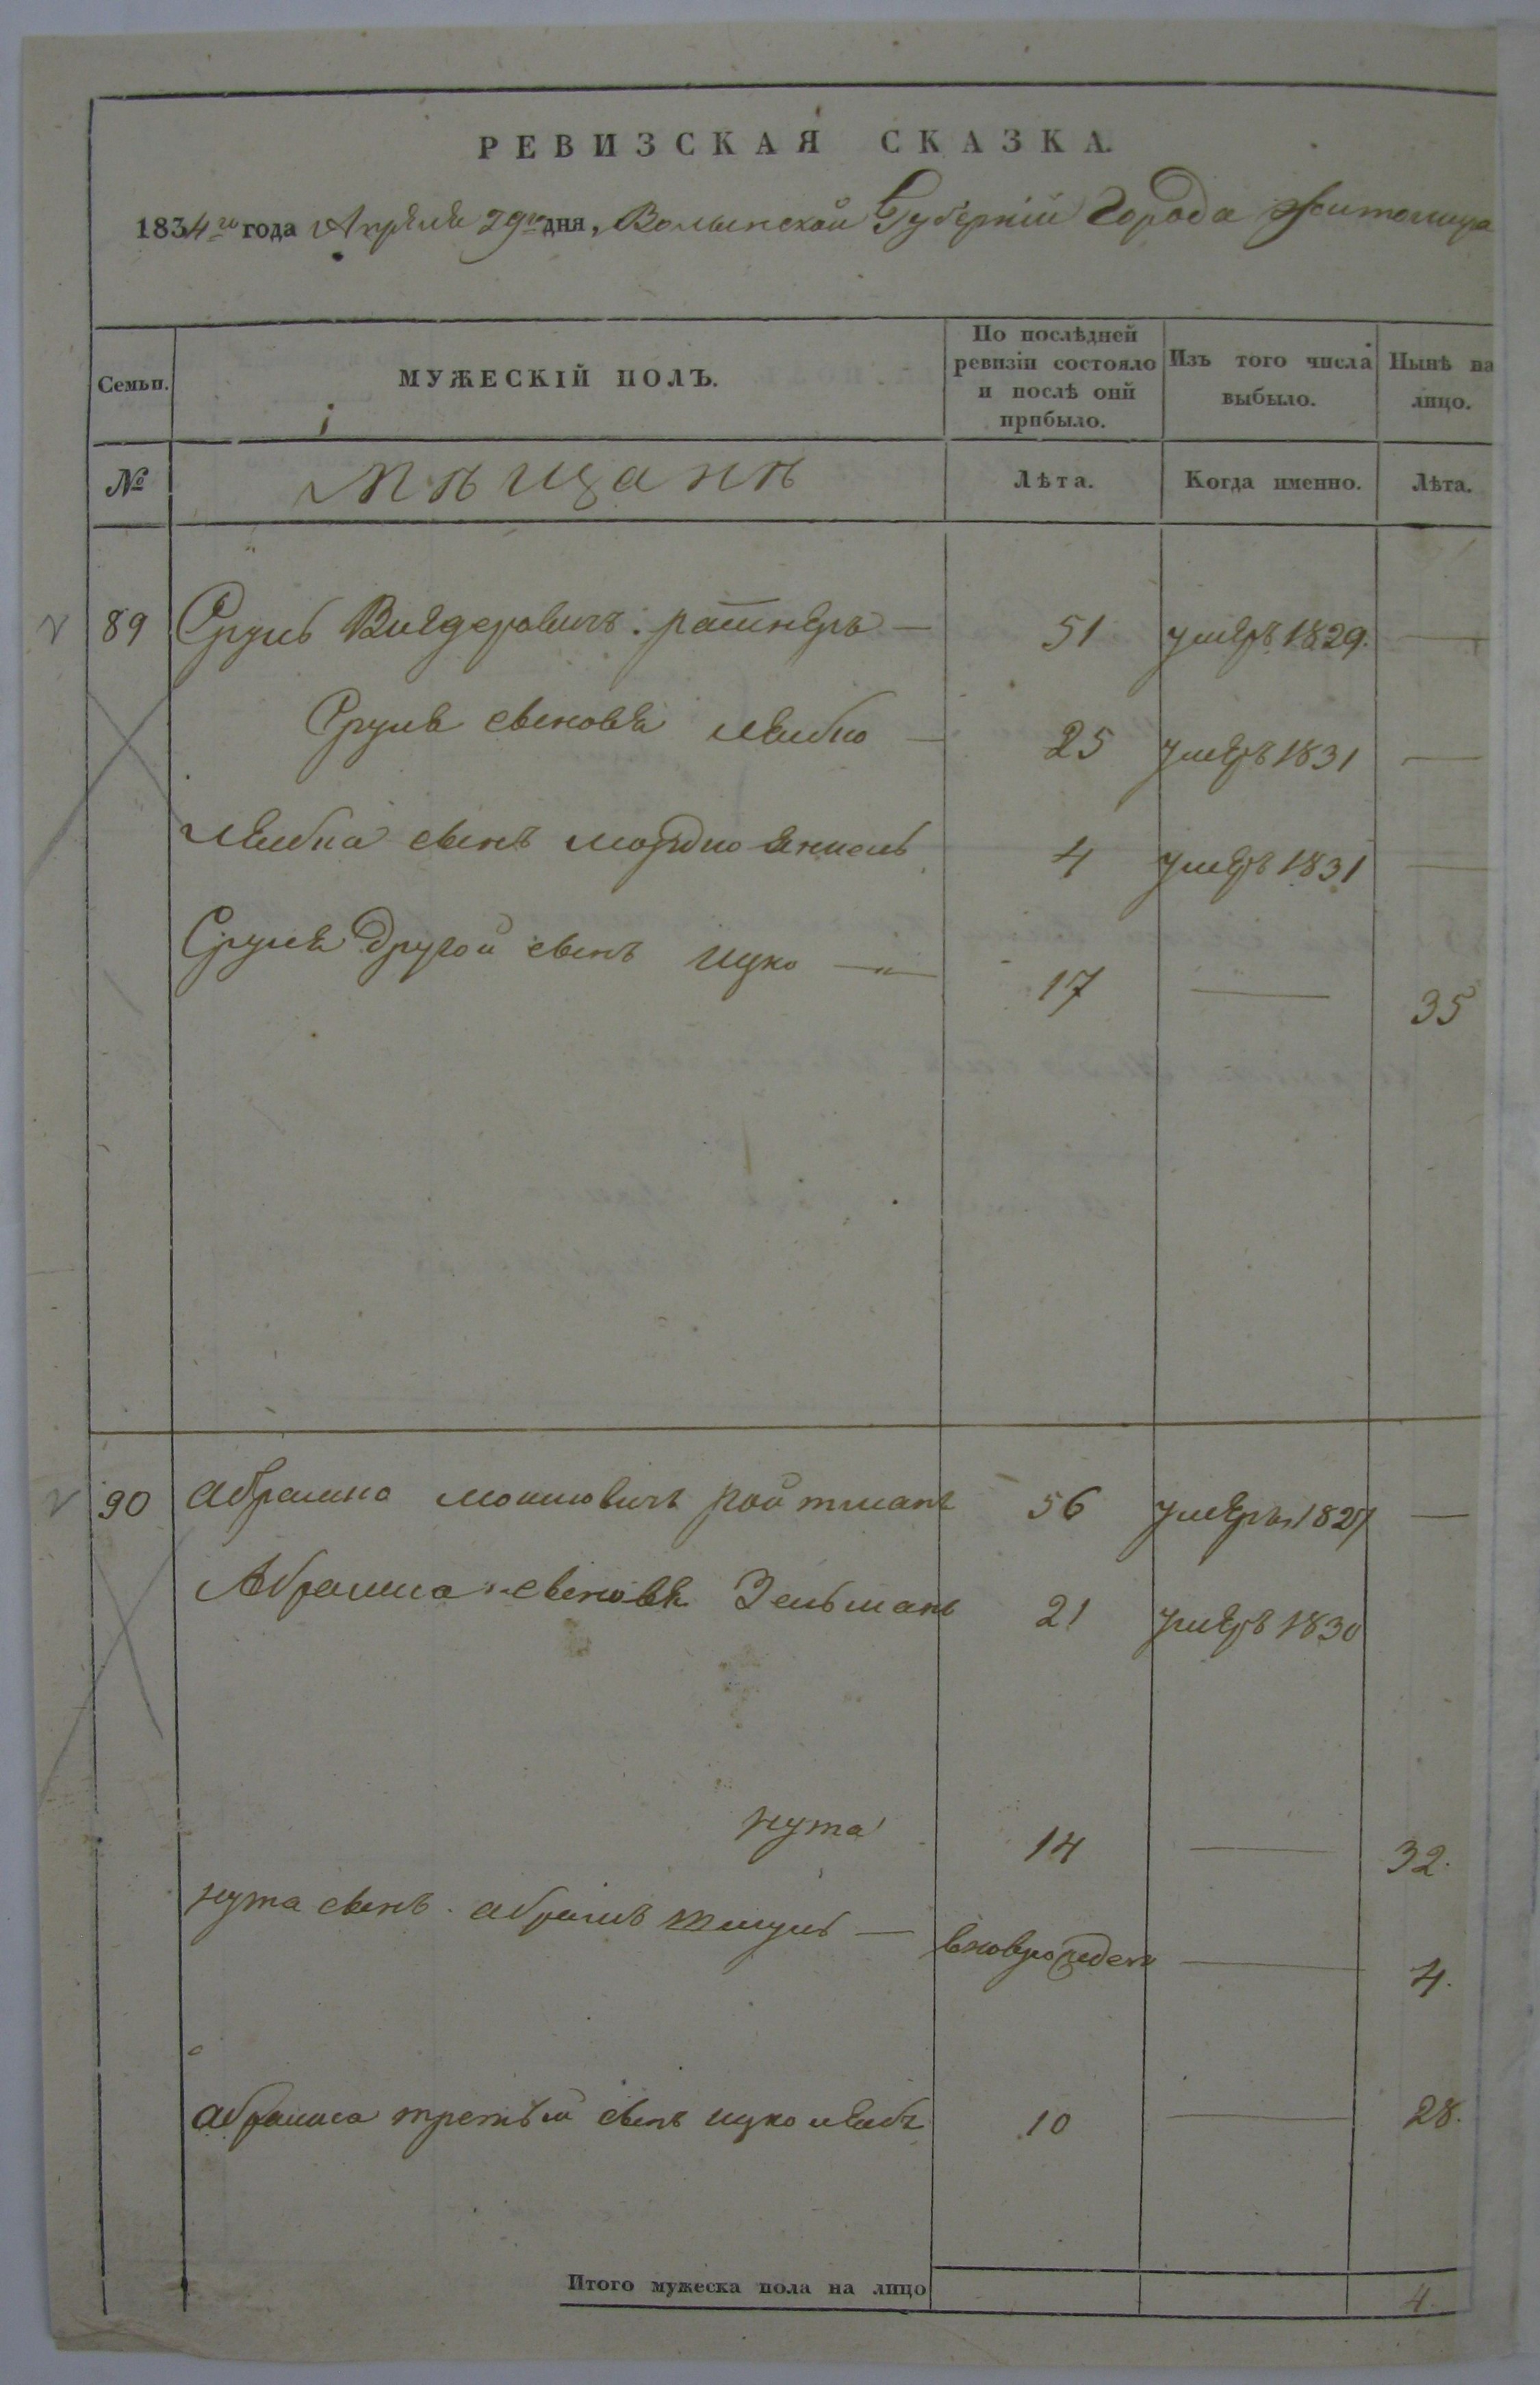 РЕВИЗСКАЯ СКАЗКА.
1834го года Апреля 29го дня, Волынской Губернии Города Житомира
Семьи. МУЖЕСКІЙ ПОЛЪ. По послѣдней ревизіи состояло и послѣ оній прибыло. Изъ того числа выбыло. Нынѣ на лицо.
№ мѣщанѣ Лѣта. Когда именно. Лѣта.
89 Сруль ратнеръ — 51 умеръ 1829. —
Сруля сыновя лейбко — 25 умеръ 1831 —
Лейбка сынъ мордко 4 умеръ 1831 —
Сруля другой сынъ ицко — 17 — 35
90 абрамко мошковичъ ройтманъ 56 умеръ 1827 —
Абрамка сыновя Зельманъ 21 умеръ 1830
нута 14 — 32.
нута сынъ абрамъ шмуль — вноврожденъ — 4.
абрамка третьй сынъ ицко лейбъ 10 — 28.
Итого мужеска пола на лицо 4.